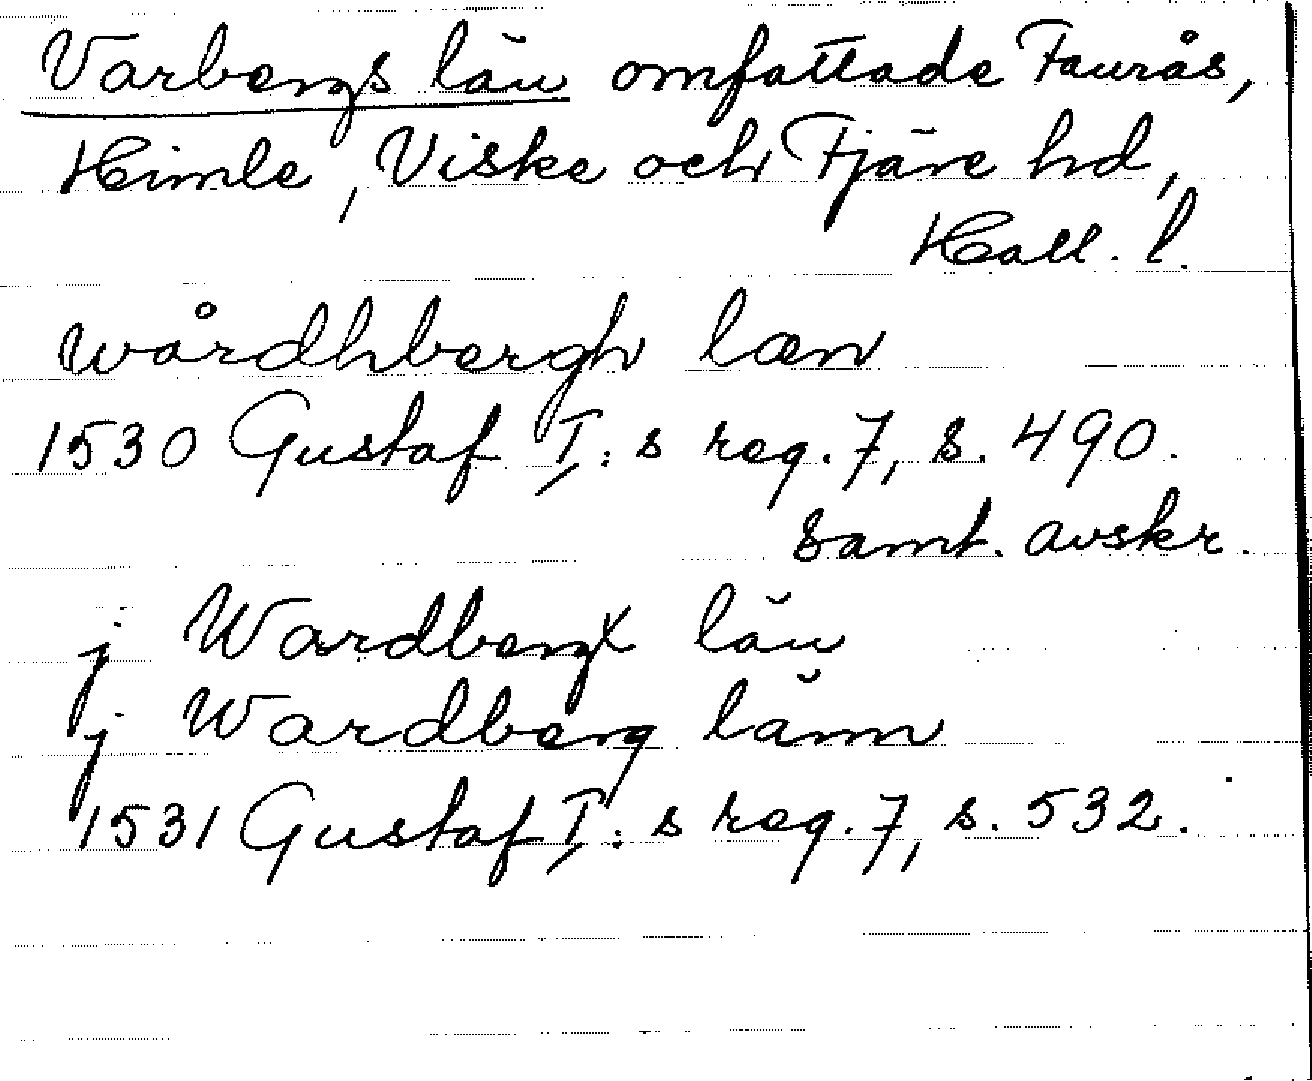 Varbergs län omfattade Faurås,
Himle, Viske och Fjäre hd,
Hall. l.
wårdhbergh læn
1530 Gustaf I:s reg. 7, s. 490.
samt. avskr.
j Wardbergx län
j Wardberg länn
1531 Gustaf I:s reg. 7, s. 532.